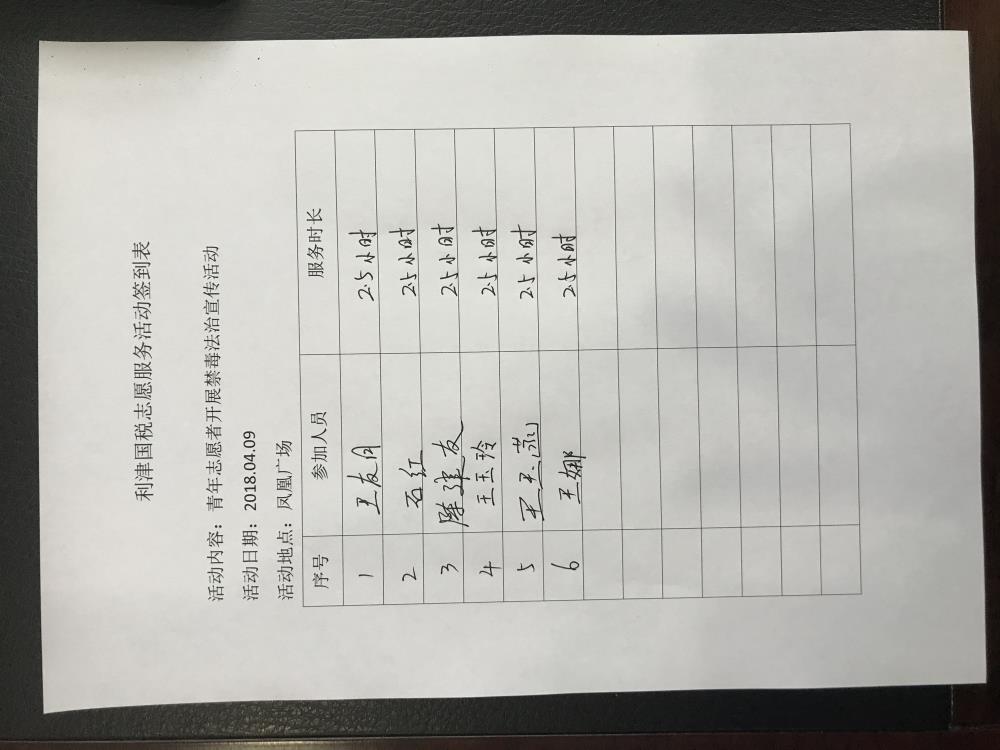 利津国税志愿服务活动签到表
活动内容：青年志愿者开展禁毒法治宣传活动
活动日期：2018.04.09
活动地点：凤凰广场
序号 参加人员 服务时长
1 王友月 2.5小时
2 石红 2.5小时
3 2.5小时
4 王玉玲 2.5小时
5 2.5小时
6 王娜 2.5小时